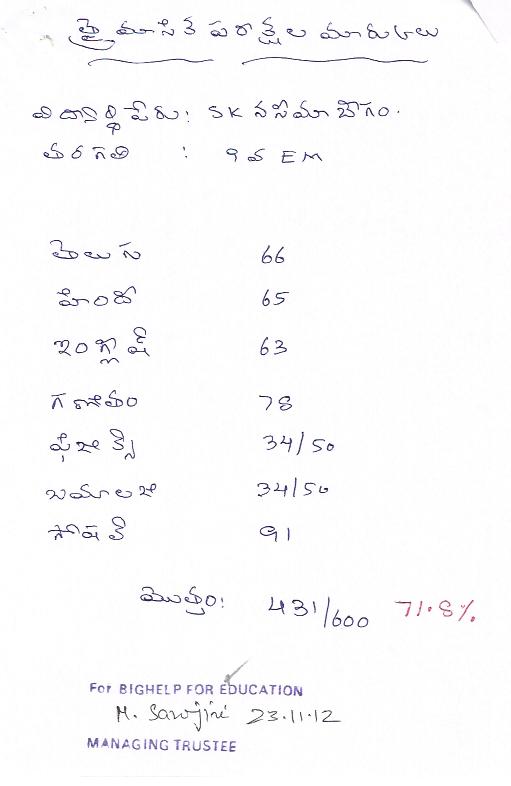 త్రైమాసిక పరీక్షల మార్కులు
విద్యార్థి పేరు: SK నసీమా బేగం.
తరగతి : 9వ EM
తెలుగు 66
హిందీ 65
ఇంగ్లీష్ 63
గణితం 78
ఫిజిక్స్ 34/50
బయాలజీ 34/50
సోషల్ 91
మొత్తం: 431/600 71.8%
For BIGHELP FOR EDUCATION
M. Sarojini 23.11.12
MANAGING TRUSTEE